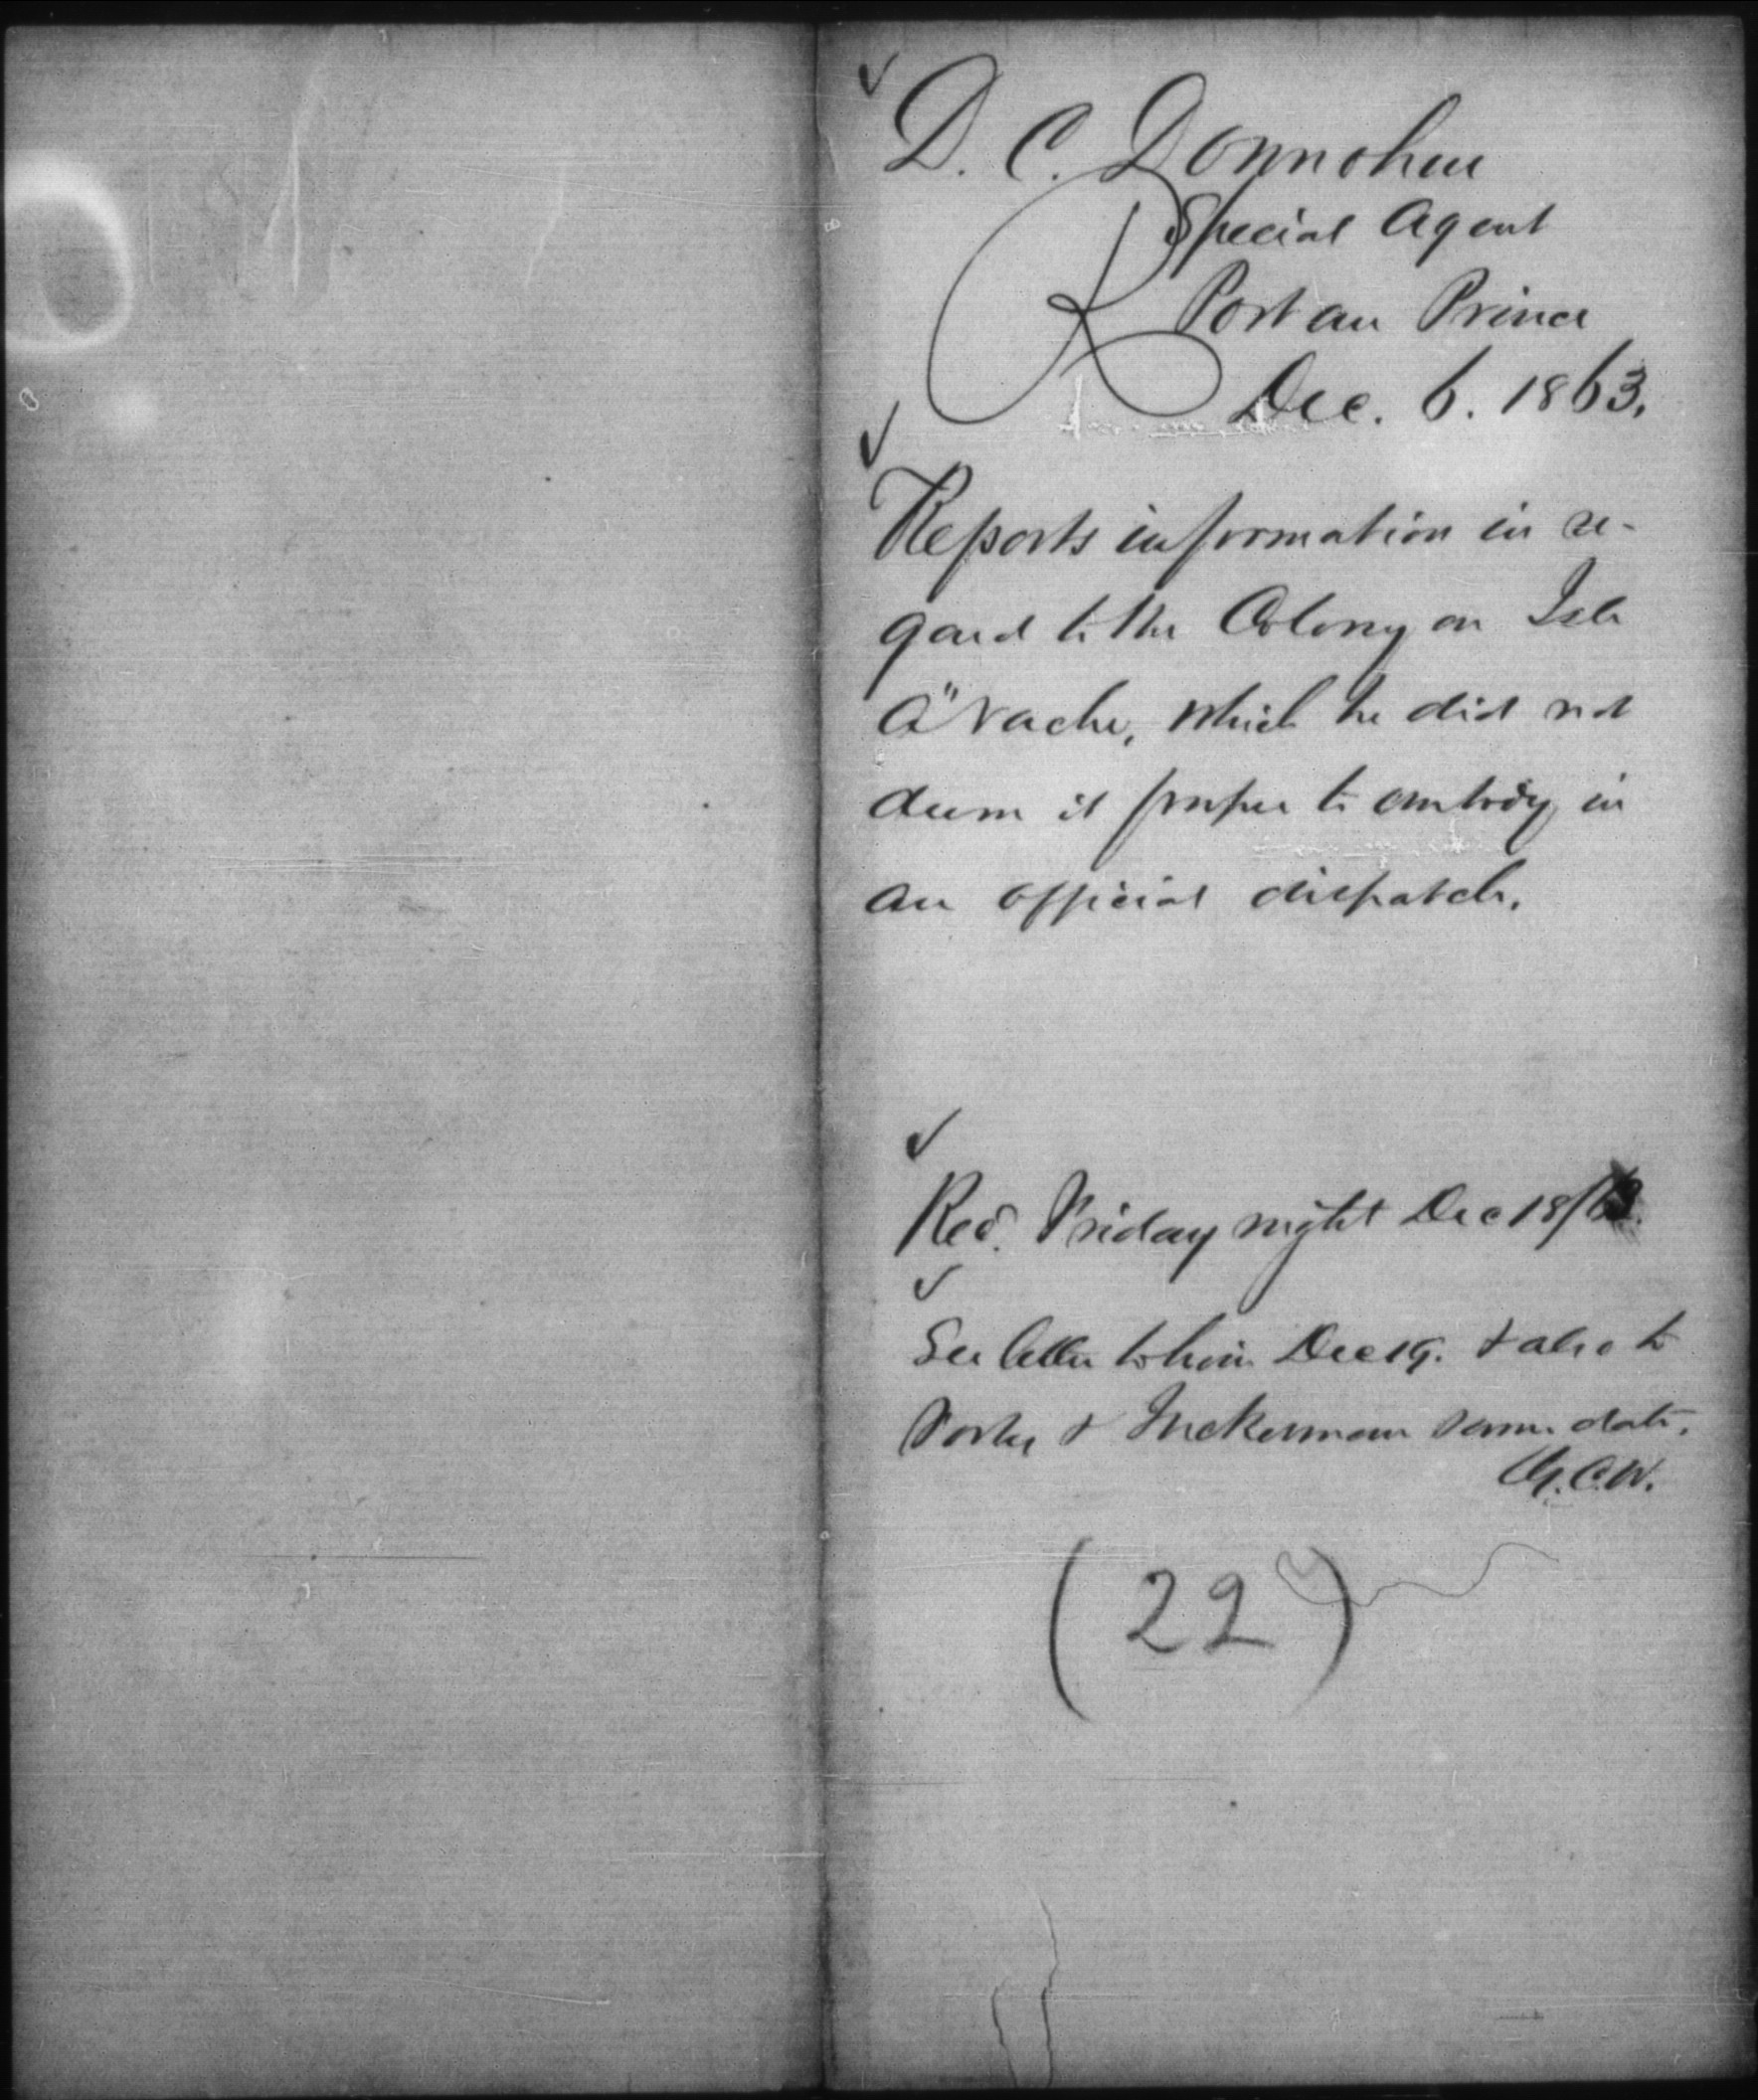 D. C. Donnohue
Special Agent
Port au Prince
Dec. 6. 1863.
Reports information in re-
gard to the Colony on Isle
A" Vache, which he did not
deem it proper to embody in
an official dispatch.
Recd. Friday night Dec 18/63.
See letter to him Dec 19. & also to
Forbes & Tuckerman same date.
(22)